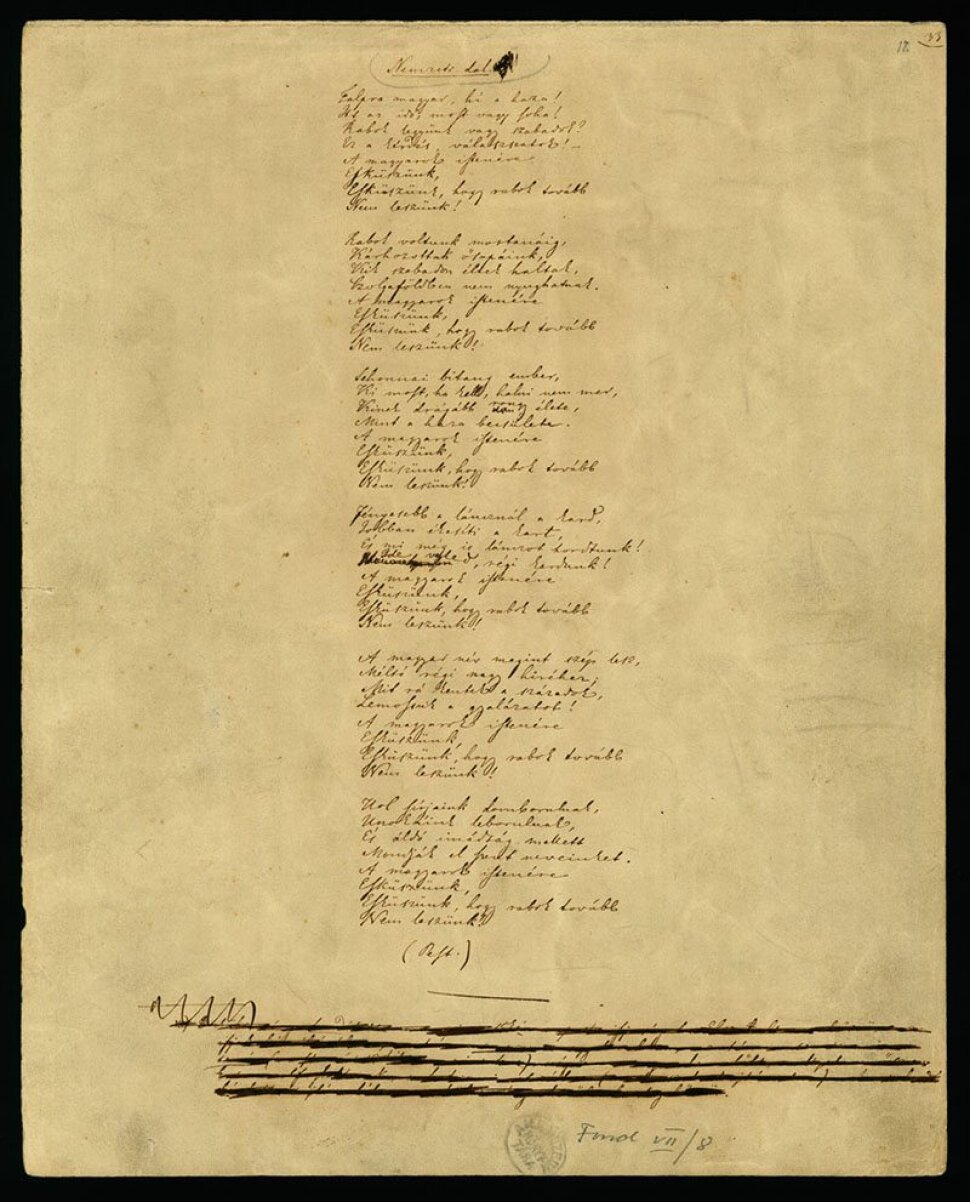 18. 33
Nemzeti dal.
Talpra magyar, hí a haza!
Itt az idő, most vagy soha!
Rabok legyünk vagy szabadok?
Ez a kérdés, válasszatok! –
A magyarok istenére
Esküszünk,
Esküszünk, hogy rabok tovább
Nem leszünk!
Rabok voltunk mostanáig,
Kárhozottak ősapáink,
Kik szabadon éltek haltak,
Szolgaföldben nem nyughatnak.
A magyarok istenére
Esküszünk,
Esküszünk, hogy rabok tovább
Nem leszünk!
Sehonnai bitang ember,
Ki most, ha kell, halni nem mer,
Kinek drágább rongy élete,
Mint a haza becsülete.
A magyarok istenére
Esküszünk,
Esküszünk, hogy rabok tovább
Nem leszünk!
Fényesebb a láncznál a kard,
Jobban ékesíti a kart,
És mi még is lánczot hordtunk!
Ide veled, régi kardunk!
A magyarok istenére
Esküszünk,
Esküszünk, hogy rabok tovább
Nem leszünk!
A magyar név megint szép lesz,
Méltó régi nagy hiréhez;
Mit rá kentek a századok,
Lemossuk a gyalázatot!
A magyarok istenére
Esküszünk,
Esküszünk, hogy rabok tovább
Nem leszünk!
Hol sírjaink domborulnak,
Unokáink leborulnak,
És áldó imádság mellett
Mondják el szent neveinket.
A magyarok istenére
Esküszünk,
Esküszünk, hogy rabok tovább
Nem leszünk!
(Pest.)
Fond VII/8